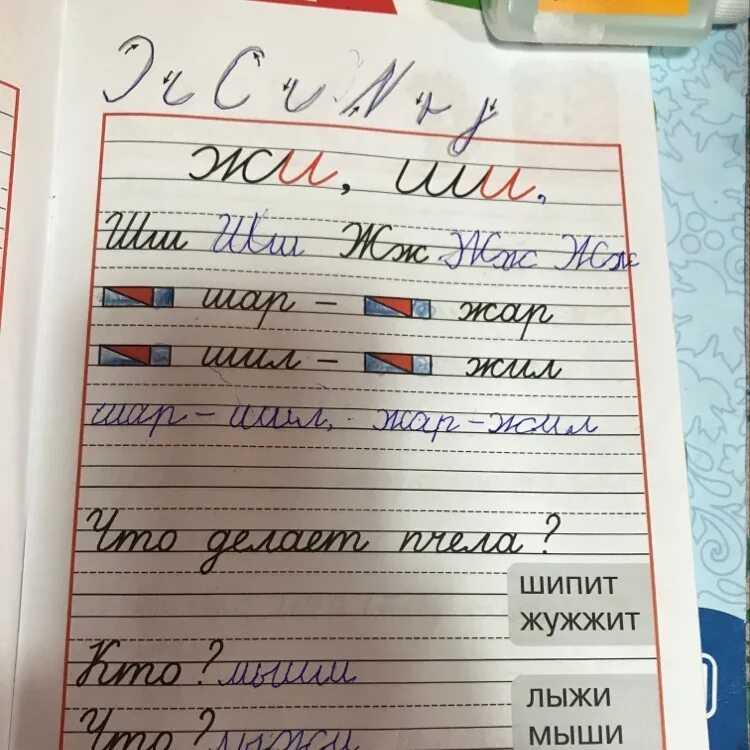 жи, ши,
Шш Шш Жж Жж Жж
шар – жар
шил – жил
шар – шил, жар – жил
Что делает пчела?
шипит
жужжит
Кто? мыши
Что? лыжи
лыжи
мыши